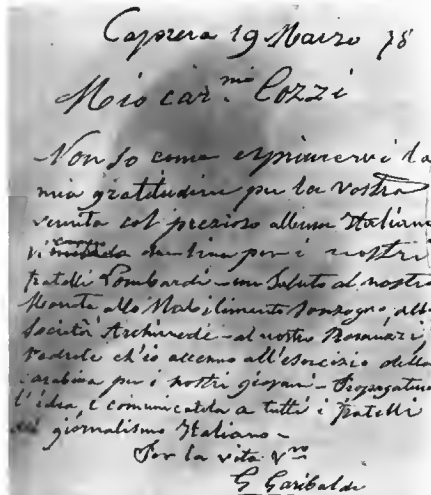 Caprera 19 Marzo 78
Mio car.mo Cozzi
Non so come esprimervi la
mia gratitudine per la vostra
venuta col prezioso album Italiano
una linea per i nostri
fratelli Lombardi - un saluto al nostro
allo Stabilimento Sonzogno, alla
Società Archimede - al nostro
ch'io accenno all'esercizio della
carabina per i nostri giovani - Propagatene
l'idea, e comunicatela a tutti i fratelli
giornalismo Italiano -
Per la vita Vro
G Garibaldi